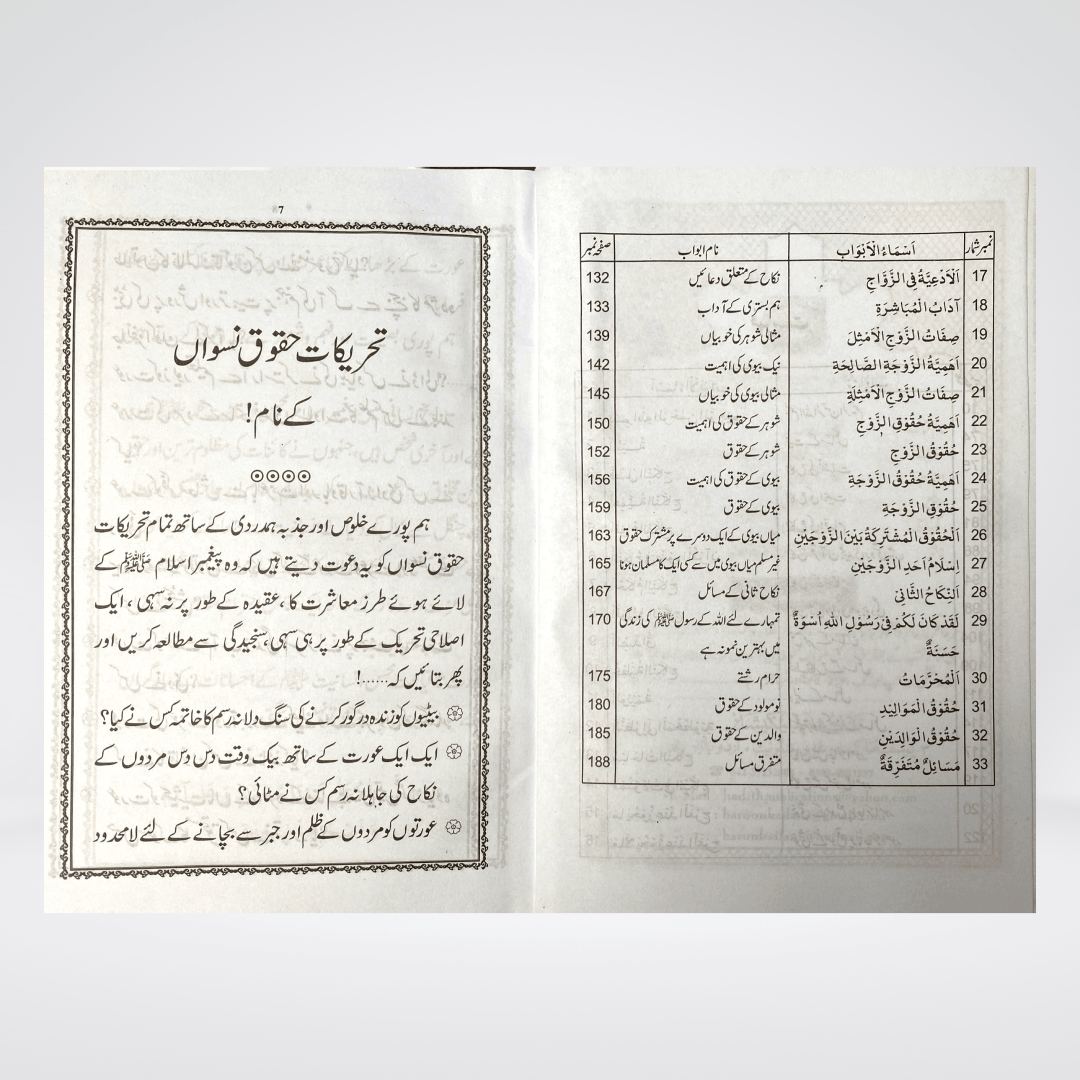 نمبر شمار اَسْمَاءُ الْاَبْوَاب نام ابواب صفحہ نمبر
17 اَلْاَدْعِيَّةُ فِى الزَّوَّاجِ نکاح کے متعلق دعائیں 132
18 آدَابُ الْمُبَاشِرَةِ ہم بستری کے آداب 133
19 صِفَاتُ الزَّوْجِ الْاَمْثِلَ مثالی شوہر کی خوبیاں 139
20 اَهَمِيَّةُ الزَّوْجَةِ الصَّالِحَةِ نیک بیوی کی اہمیت 142
21 صِفَاتُ الزَّوْجِ الْاَمْثِلَةِ مثالی بیوی کی خوبیاں 145
22 اَهَمِيَّةُ حُقُوْقِ الزَّوْجِ شوہر کے حقوق کی اہمیت 150
23 حُقُوْقُ الزَّوْجِ شوہر کے حقوق 152
24 اَهَمِيَّةُ حُقُوْقُ الزَّوْجَةِ بیوی کے حقوق کی اہمیت 156
25 حُقُوْقِ الزَّوْجَةِ بیوی کے حقوق 159
26 اَلْحُقُوْقُ الْمُشْتَرِكَةُ بَيْنَ الزَّوْجَيْنِ میاں بیوی کے ایک دوسرے پر مشترکہ حقوق 163
27 اِسْلَامُ اَحَدِ الزَّوْجَيْنِ غیر مسلم میاں بیوی میں سے کسی ایک کا مسلمان ہونا 165
28 اَلنِّكَاحُ الثَّانِىْ نکاح ثانی کے مسائل 167
29 لَقَدْ كَانَ لَكُمْ فِىْ رَسُوْلِ اللهِ اُسْوَةٌ تمہارے لئے اللہ کے رسول ﷺ کی زندگی 170
حَسَنَةٌ میں بہترین نمونہ ہے
30 اَلْمُحَرَّمَاتُ حرام رشتے 175
31 حُقُوْقُ الْمَوَالِيْدِ نومولود کے حقوق 180
32 حُقُوْقُ الْوَالِدَيْنِ والدین کے حقوق 185
33 مَسَائِلٌ مُتَفَرِّقَةٌ متفرق مسائل 188
7
تحریکات حقوق نسواں
کے نام!
ہم پورے خلوص اور جذبہ ہمدردی کے ساتھ تمام تحریکات
حقوق نسواں کو یہ دعوت دیتے ہیں کہ وہ پیغمبر اسلام ﷺ کے
لائے ہوئے طرز معاشرت کا، عقیدہ کے طور پر نہ سہی، ایک
اصلاحی تحریک کے طور پر ہی سہی، سنجیدگی سے مطالعہ کریں اور
پھر بتائیں کہ......!
بیٹیوں کو زندہ درگور کرنے کی سنگ دلانہ رسم کا خاتمہ کس نے کیا؟
ایک ایک عورت کے ساتھ بیک وقت دس دس مردوں کے
نکاح کی جاہلانہ رسم کس نے مٹائی؟
عورتوں کو مردوں کے ظلم اور جبر سے بچانے کے لئے لامحدود